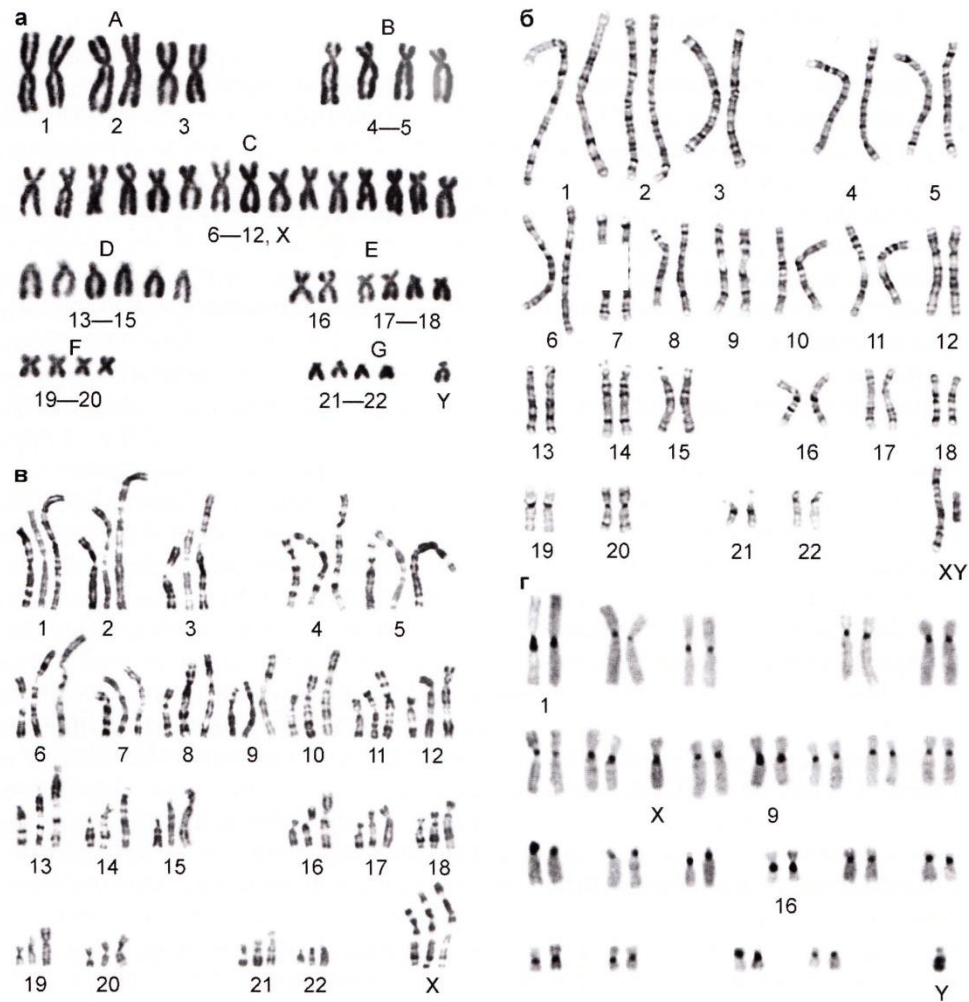 а
A B
1 2 3 4—5
C
6—12, X
D E
13—15 16 17—18
F G
19—20 21—22 Y
б
1 2 3 4 5
6 7 8 9 10 11 12
13 14 15 16 17 18
19 20 21 22 XY
в
1 2 3 4 5
6 7 8 9 10 11 12
13 14 15 16 17 18
19 20 21 22 X
г
1
X 9
16
Y